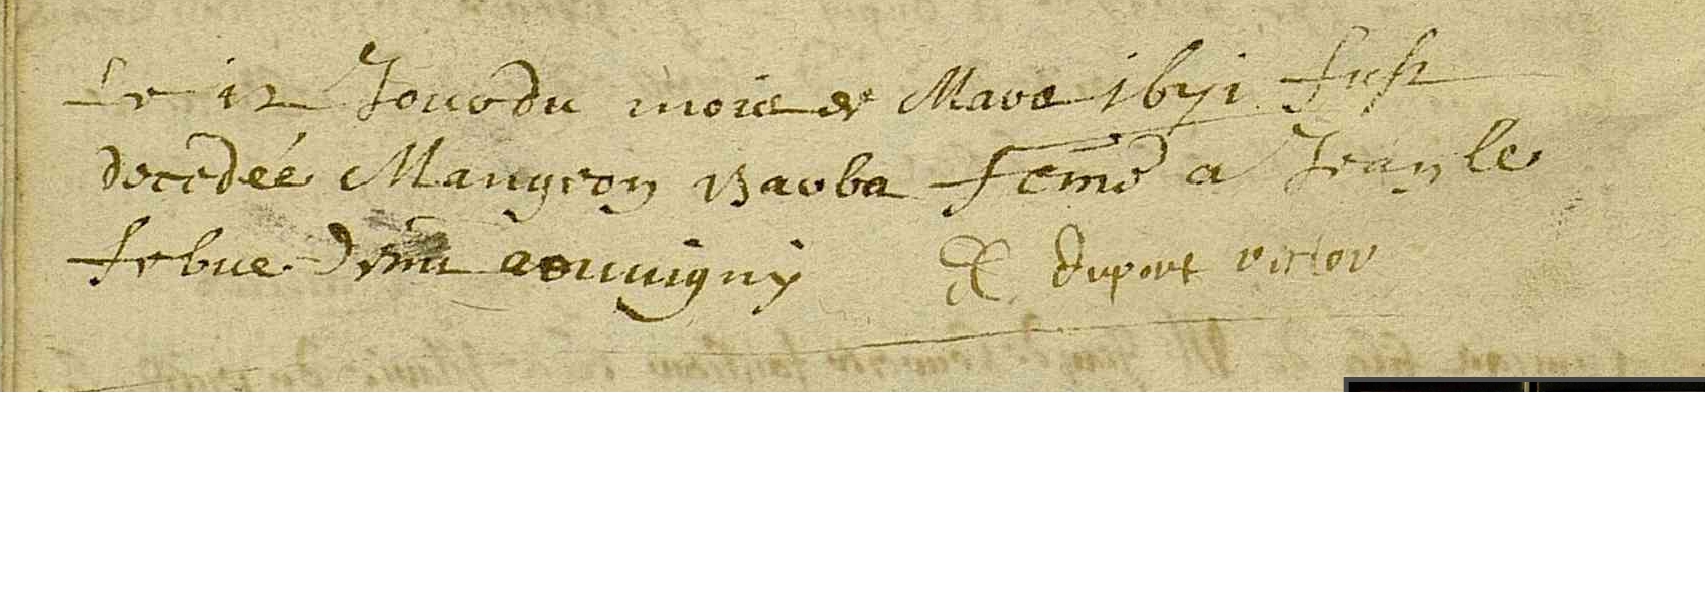 Le 12 Jour du mois de Mars 1671 fust
decedée Mangeon Barba feme a Jean le
febue a
D. Duport victor